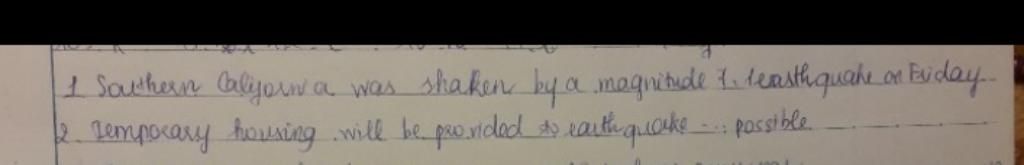 1 Southern California was shaken by a magnitude 7.1 earthquake on Friday
2. Temporary housing will be provided to earthquake ... possible